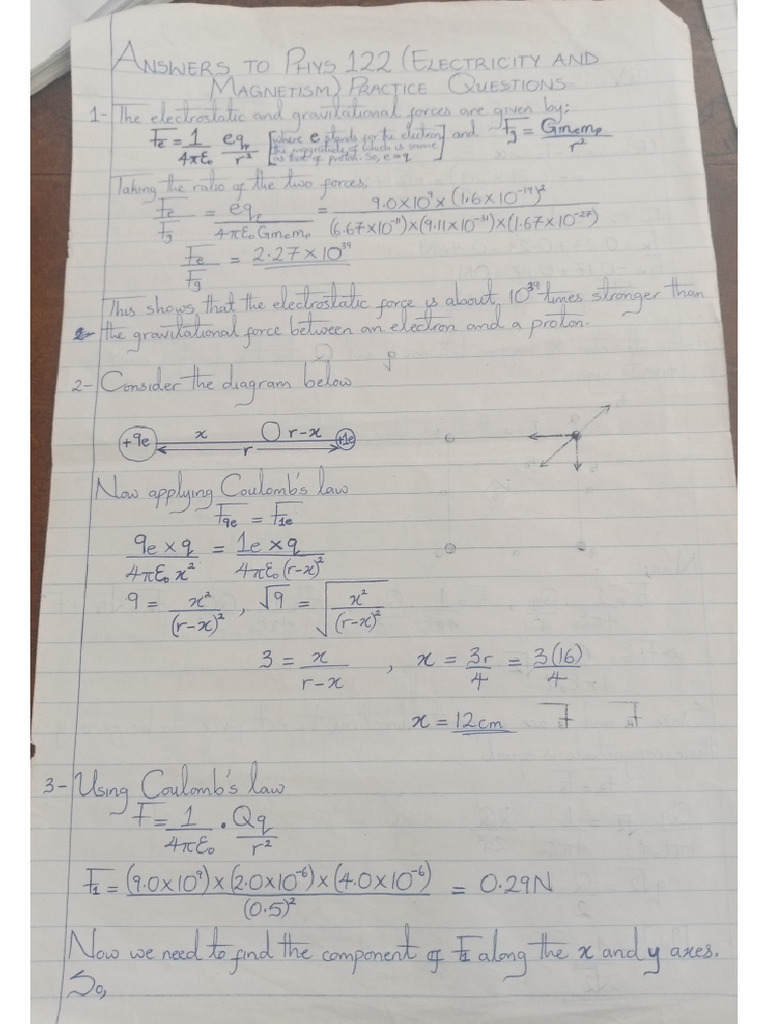 ANSWERS TO PHYS 122 (ELECTRICITY AND
MAGNETISM) PRACTICE QUESTIONS
1- The electrostatic and gravitational forces are given by:
Fe = 1/4πε₀ eqp/r² [where e stands for the electron the magnitude of which is same as that of proton. So, e = q] and Fg = Gmemp/r²
Taking the ratio of the two forces,
Fe/Fg = eqp/4πε₀Gmemp = 9.0×10⁹×(1.6×10⁻¹⁹)²/(6.67×10⁻¹¹)×(9.11×10⁻³¹)×(1.67×10⁻²⁷)
Fe/Fg = 2.27×10³⁹
This shows that the electrostatic force is about 10³⁹ times stronger than
the gravitational force between an electron and a proton.
2- Consider the diagram below
+9e x r-x +1e
r
Now applying Coulomb's law
F9e = F1e
9e×q/4πε₀x² = 1e×q/4πε₀(r-x)²
9 = x²/(r-x)², √9 = √x²/(r-x)²
3 = x/r-x, x = 3r/4 = 3(16)/4
x = 12cm
3- Using Coulomb's law
F = 1/4πε₀ . Qq/r²
F1 = (9.0×10⁹)×(2.0×10⁻⁶)×(4.0×10⁻⁶)/(0.5)² = 0.29N
Now we need to find the component of F1 along the x and y axes.
So,